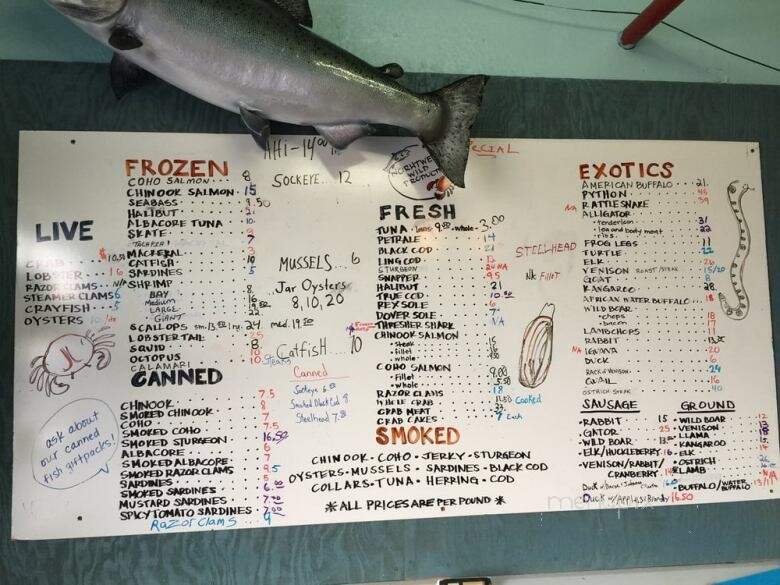 LIVE
CRAB $10.50
LOBSTER 16
RAZOR CLAMS N/A
STEAMER CLAMS 6
CRAYFISH 5
OYSTERS
ask about
our canned
fish giftpacks!
FROZEN
COHO SALMON 8
CHINOOK SALMON 15
SEABASS 8.50
HALIBUT 21
ALBACORE TUNA 10
SKATE 9
MACKERAL
CATFISH 10
SARDINES 5
SHRIMP
BAY 8
Medium
LARGE
GIANT
SCALLOPS sm. 13 lrg. 24 med. 19
LOBSTER TAIL 25
SQUID 8
OCTOPUS 10
CALAMARI 10 Steaks
CANNED
CHINOOK 7.5
SMOKED CHINOOK 8
COHO 7
SMOKED COHO 7.5
SMOKED STURGEON 16.50
ALBACORE 6
SMOKED ALBACORE 7
SMOKED RAZOR CLAMS 9.5
SARDINES 5
SMOKED SARDINES 6
MUSTARD SARDINES 7
SPICY TOMATO SARDINES 7
Razor Clams 9
AHI - 14
SOCKEYE 12
MUSSELS 6
Jar Oysters
8, 10, 20
Catfish 10
Canned
Sockeye
Smoked Black Cod 8
Steelhead 7
NORTHWEST
WILD
PRODUCTS
SPECIAL
FRESH
TUNA loins 9.00 whole 3.00
PETRALE 14
BLACK COD 21
LING COD 13
STURGEON 24 NA
SNAPPER 9.5
HALIBUT 21
TRUE COD 10.50
REX SOLE 6
DOVER SOLE 7
THRESHER SHARK NA
CHINOOK SALMON
steak 15
fillet 16
whole
COHO SALMON
fillet 9.00
whole 5.50
RAZOR CLAMS 18
WHOLE CRAB 11.50 Cooked
CRAB MEAT
CRAB CAKES 7 Each
STEELHEAD
Fillet
SMOKED
CHINOOK · COHO · JERKY · STURGEON
OYSTERS · MUSSELS · SARDINES · BLACK COD
COLLARS · TUNA · HERRING · COD
* ALL PRICES ARE PER POUND *
EXOTICS
AMERICAN BUFFALO 21
PYTHON 45
NA RATTLE SNAKE 39
ALLIGATOR
tenderloin 31
leg and body meat 22
ribs
FROG LEGS 11
TURTLE 22
ELK 26
VENISON ROAST/STEAK 15/20
GOAT 8
KANGAROO 28
AFRICAN WATER BUFFALO 18
WILD BOAR
chops 18
bacon 17
LAMBCHOPS 11
RABBIT
NA IGUANA 20
DUCK 6
RACK OF VENISON 24
QUAIL 16
OSTRICH STEAK 40
SAUSAGE
RABBIT 15
GATOR 25
WILD BOAR
ELK/HUCKLEBERRY 16
VENISON/RABBIT/
CRANBERRY
Duck
Duck w/Apples & Brandy 16.50
GROUND
WILD BOAR 12
VENISON
LLAMA
KANGAROO
ELK
OSTRICH
LAMB N/A
BUFFALO/WATER
BUFFALO 13/11